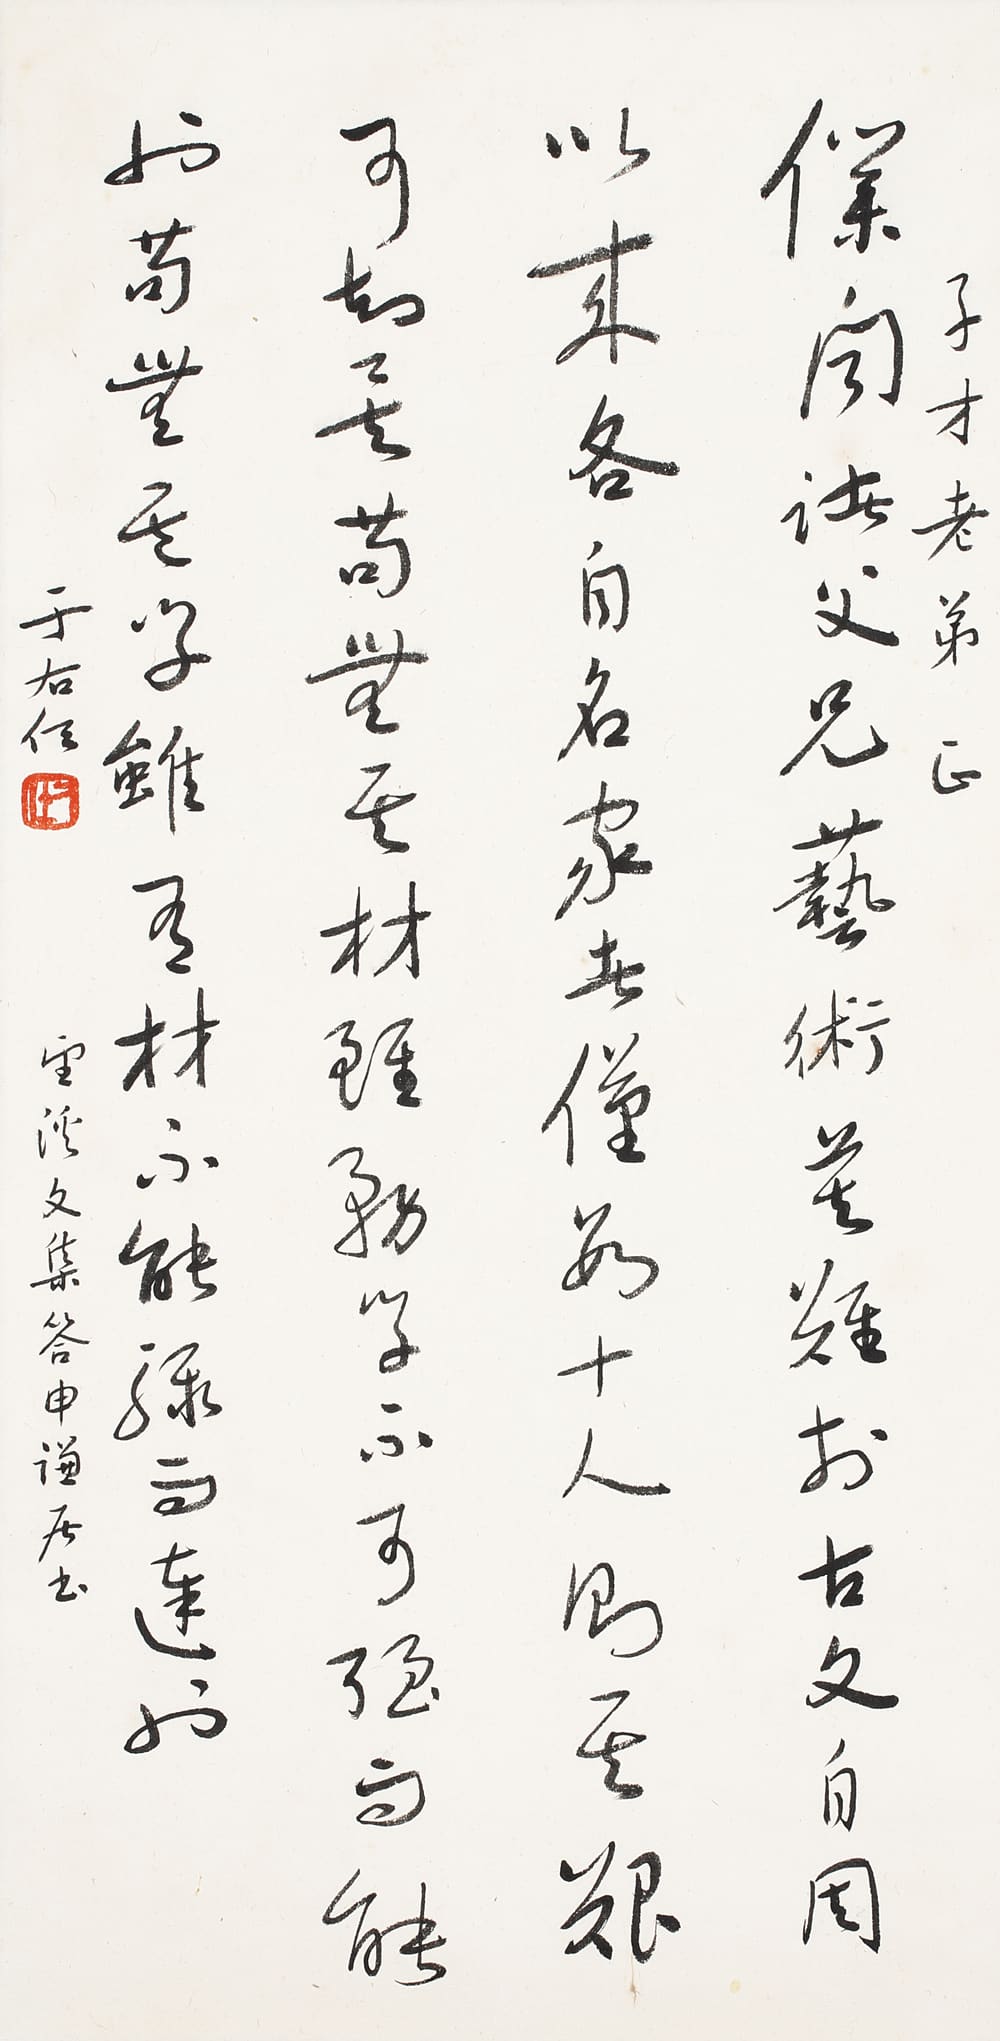 子才老弟正
僕聞諸父兄藝術莫難於古文自周
以來各自名家者僅數十人則其艱
可知矣苟無其材雖務學不可强而能
也苟無其學雖有材不能驟而達也
于右任
望溪文集答申謙居書